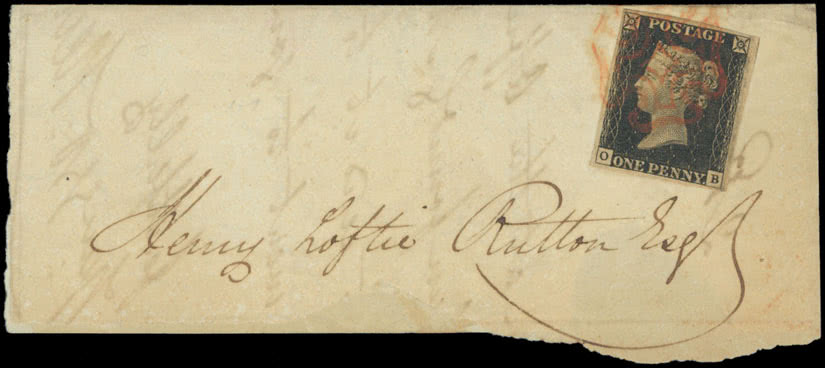 POSTAGE
O ONE PENNY B
Henry Loftie Rutton Esqr